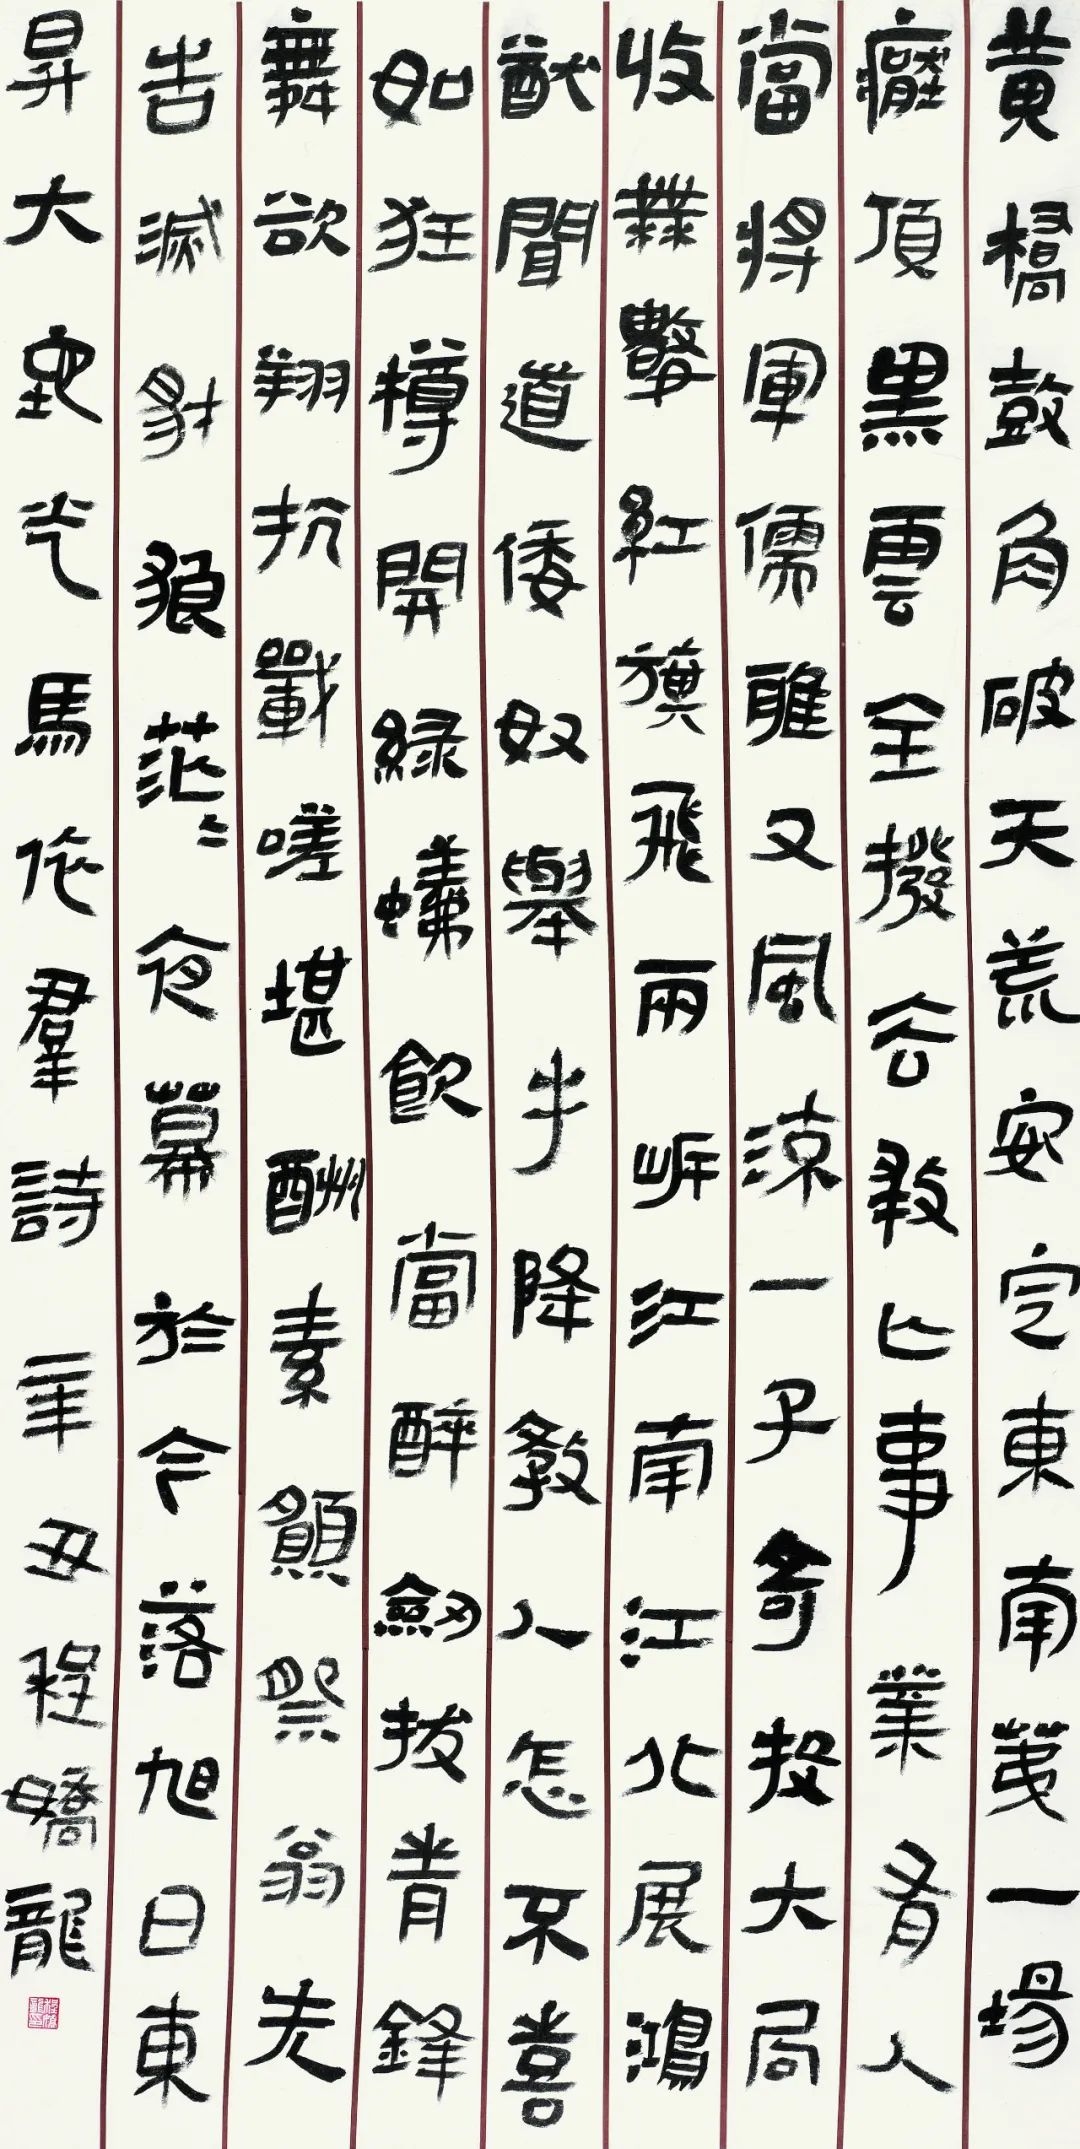 黄橋鼓角破天荒安定東南第一場
壓頂黑雲全撥去救亡事業有人
當將軍儒雅又風涼一子奇投大局
收舞擊紅旗飛兩岸江南江北展鴻
猷聞道倭奴舉手降教人怎不喜
如狂樽開緑蟻飲當醉劍拔青鋒
舞欲翔抗戰嗟堪酬素願祭翁先
告滅豺狼茫〻夜幕於今落旭日東
昇大地光馬依羣詩辛丑程嬌龍